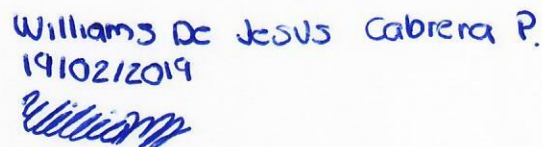 Williams De Jesus Cabrera P.
19/02/2019
Williams